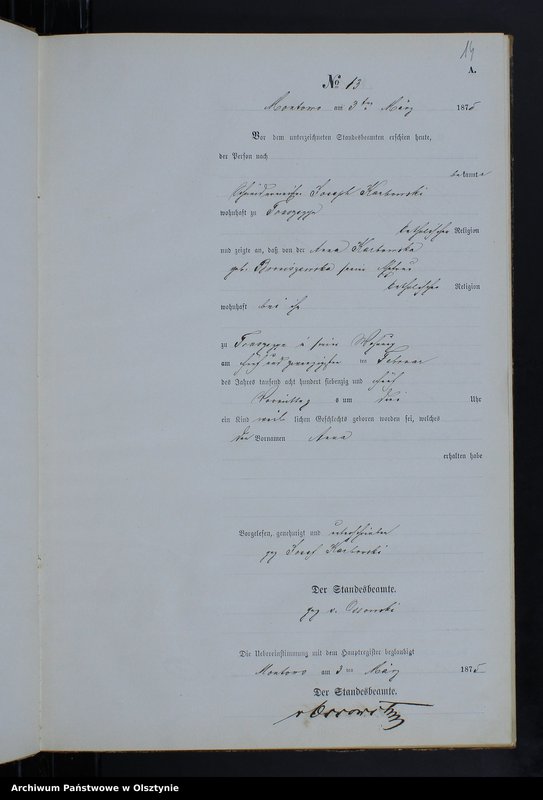 14
A.
No 13
Montowo am 3ten März 1875
Vor dem unterzeichneten Standesbeamten erschien heute,
der Person nach
bekannt
Joseph Karbowski
wohnhaft zu
katholischer Religion
und zeigte an, daß von der Anna Karbowska
geb. seine Ehefrau
katholischer Religion
wohnhaft bei ihm
zu in seiner Wohnung
am fünf und zwanzigsten im Februar
des Jahres tausend acht hundert siebenzig und fünf
Vormittags um drei Uhr
ein Kind weiblichen Geschlechts geboren worden sei, welches
den Vornamen Anna
erhalten habe
Vorgelesen, genehmigt und unterschrieben
gez Josef Karbowski
Der Standesbeamte.
gez v. Ossowski
Die Uebereinstimmung mit dem Hauptregister beglaubigt
Montowo am 3ten März 1875
Der Standesbeamte.
v Ossowski
Archiwum Państwowe w Olsztynie